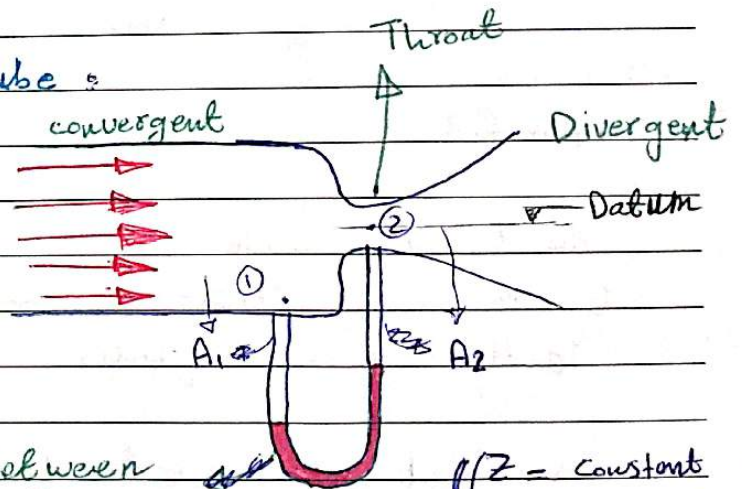 Throat
ube :
convergent
Divergent
Datum
②
①
A1
A2
etween
Z = constant